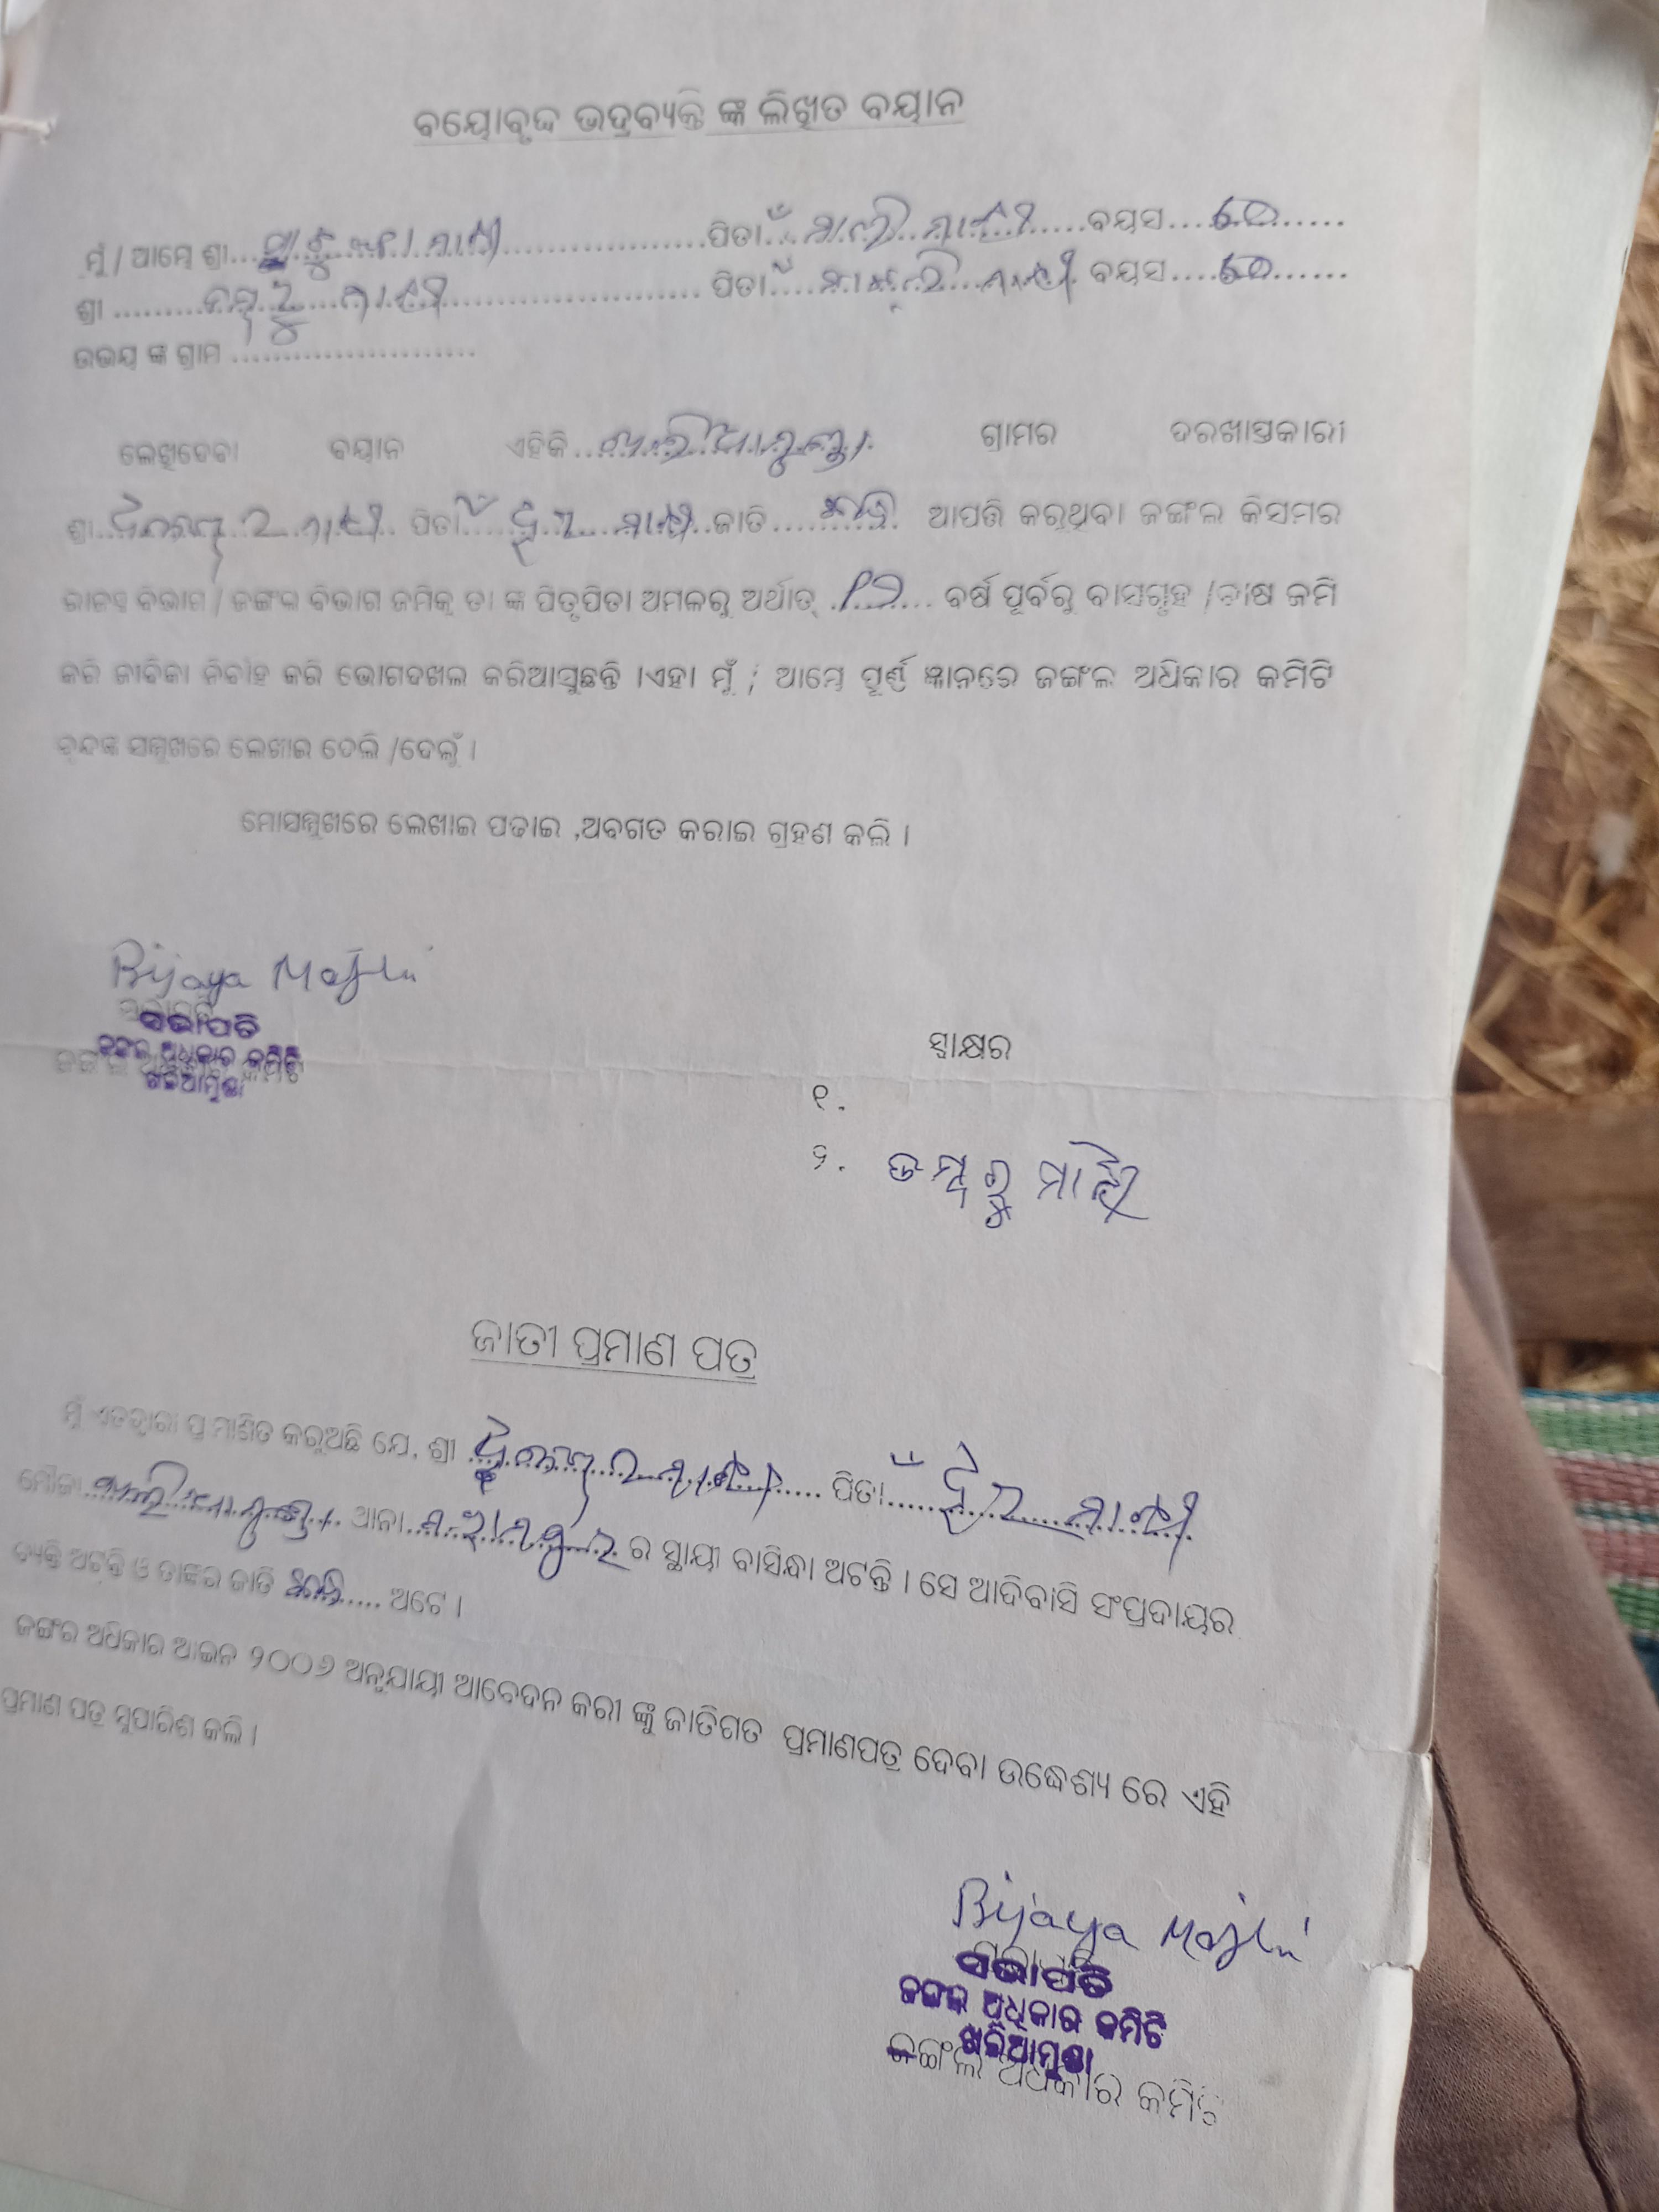 ବୟୋବୃଦ୍ଧ ଭଦ୍ରବ୍ୟକ୍ତି ଙ୍କ ଲିଖିତ ବୟାନ
ମୁଁ / ଆମ୍ଭେ ଶ୍ରୀ.................ମାଝୀ.................ପିତା.......ମାଝୀ.....ବୟସ....୬୦......
ଶ୍ରୀ .........ଡମ୍ବରୁ....ମାଝୀ...................... ପିତା.......ମାଝୀ. ବୟସ....୬୦......
ଉଭୟ ଙ୍କ ଗ୍ରାମ .......................
ଲେଖିଦେବା ବୟାନ ଏହିକି...ଖଲିଆମୁଣ୍ଡା. ଗ୍ରାମର ଦରଖାସ୍ତକାରୀ
ଶ୍ରୀ..........ମାଝୀ.. ପିତା.......ମାଝୀ..ଜାତି........... ଆପତ୍ତି କରୁଥିବା ଜଙ୍ଗଲ କିସମର
ରାଜସ୍ୱ ବିଭାଗ / ଜଙ୍ଗଲ ବିଭାଗ ଜମିକୁ ତା ଙ୍କ ପିତୃପିତା ଅମଳରୁ ଅର୍ଥାତ୍ .......... ବର୍ଷ ପୂର୍ବରୁ ବାସଗୃହ /ଚାଷ ଜମି
କରି ଜୀବିକା ନିର୍ବାହ କରି ଭୋଗଦଖଲ କରିଆସୁଛନ୍ତି ।ଏହା ମୁଁ / ଆମ୍ଭେ ପୂର୍ଣ୍ଣ ଜ୍ଞାନରେ ଜଙ୍ଗଲ ଅଧିକାର କମିଟି
ବୃନ୍ଦଙ୍କ ସମ୍ମୁଖରେ ଲେଖାଇ ଦେଲି /ଦେଲୁଁ ।
ମୋସମ୍ମୁଖରେ ଲେଖାଇ ପଢାଇ ,ଅବଗତ କରାଇ ଗ୍ରହଣ କଲି ।
Bijaya Majhi
ସଭାପତି
ଜଙ୍ଗଲ ଅଧିକାର କମିଟି
ଖଲିଆମୁଣ୍ଡା
ସ୍ୱାକ୍ଷର
୧ .
୨ . ଡମ୍ବରୁ ମାଝି
ଜାତୀ ପ୍ରମାଣ ପତ୍ର
ମୁଁ ଏତଦ୍ୱାରା ପ୍ରମାଣିତ କରୁଅଛି ଯେ, ଶ୍ରୀ ..........ମାଝୀ...... ପିତା.........ମାଝୀ
ମୌଜା..ଖଲିଆମୁଣ୍ଡା.. ଥାନା............ ର ସ୍ଥାୟୀ ବାସିନ୍ଧା ଅଟନ୍ତି । ସେ ଆଦିବାସି ସଂପ୍ରଦାୟର
ବ୍ୟକ୍ତି ଅଟନ୍ତି ଓ ତାଙ୍କର ଜାତି ......... ଅଟେ ।
ଜଙ୍ଗର ଅଧିକାର ଆଇନ ୨୦୦୬ ଅନୁଯାୟୀ ଆବେଦନ କରୀ ଙ୍କୁ ଜାତିଗତ ପ୍ରମାଣପତ୍ର ଦେବା ଉଦ୍ଧେଶ୍ୟ ରେ ଏହି
ପ୍ରମାଣ ପତ୍ର ସୁପାରିଶ କଲି ।
Bijaya Majhi
ସଭାପତି
ଜଙ୍ଗଲ ଅଧିକାର କମିଟି
ଖଲିଆମୁଣ୍ଡା
ଜଙ୍ଗଲ ଅଧିକାର କମିଟି